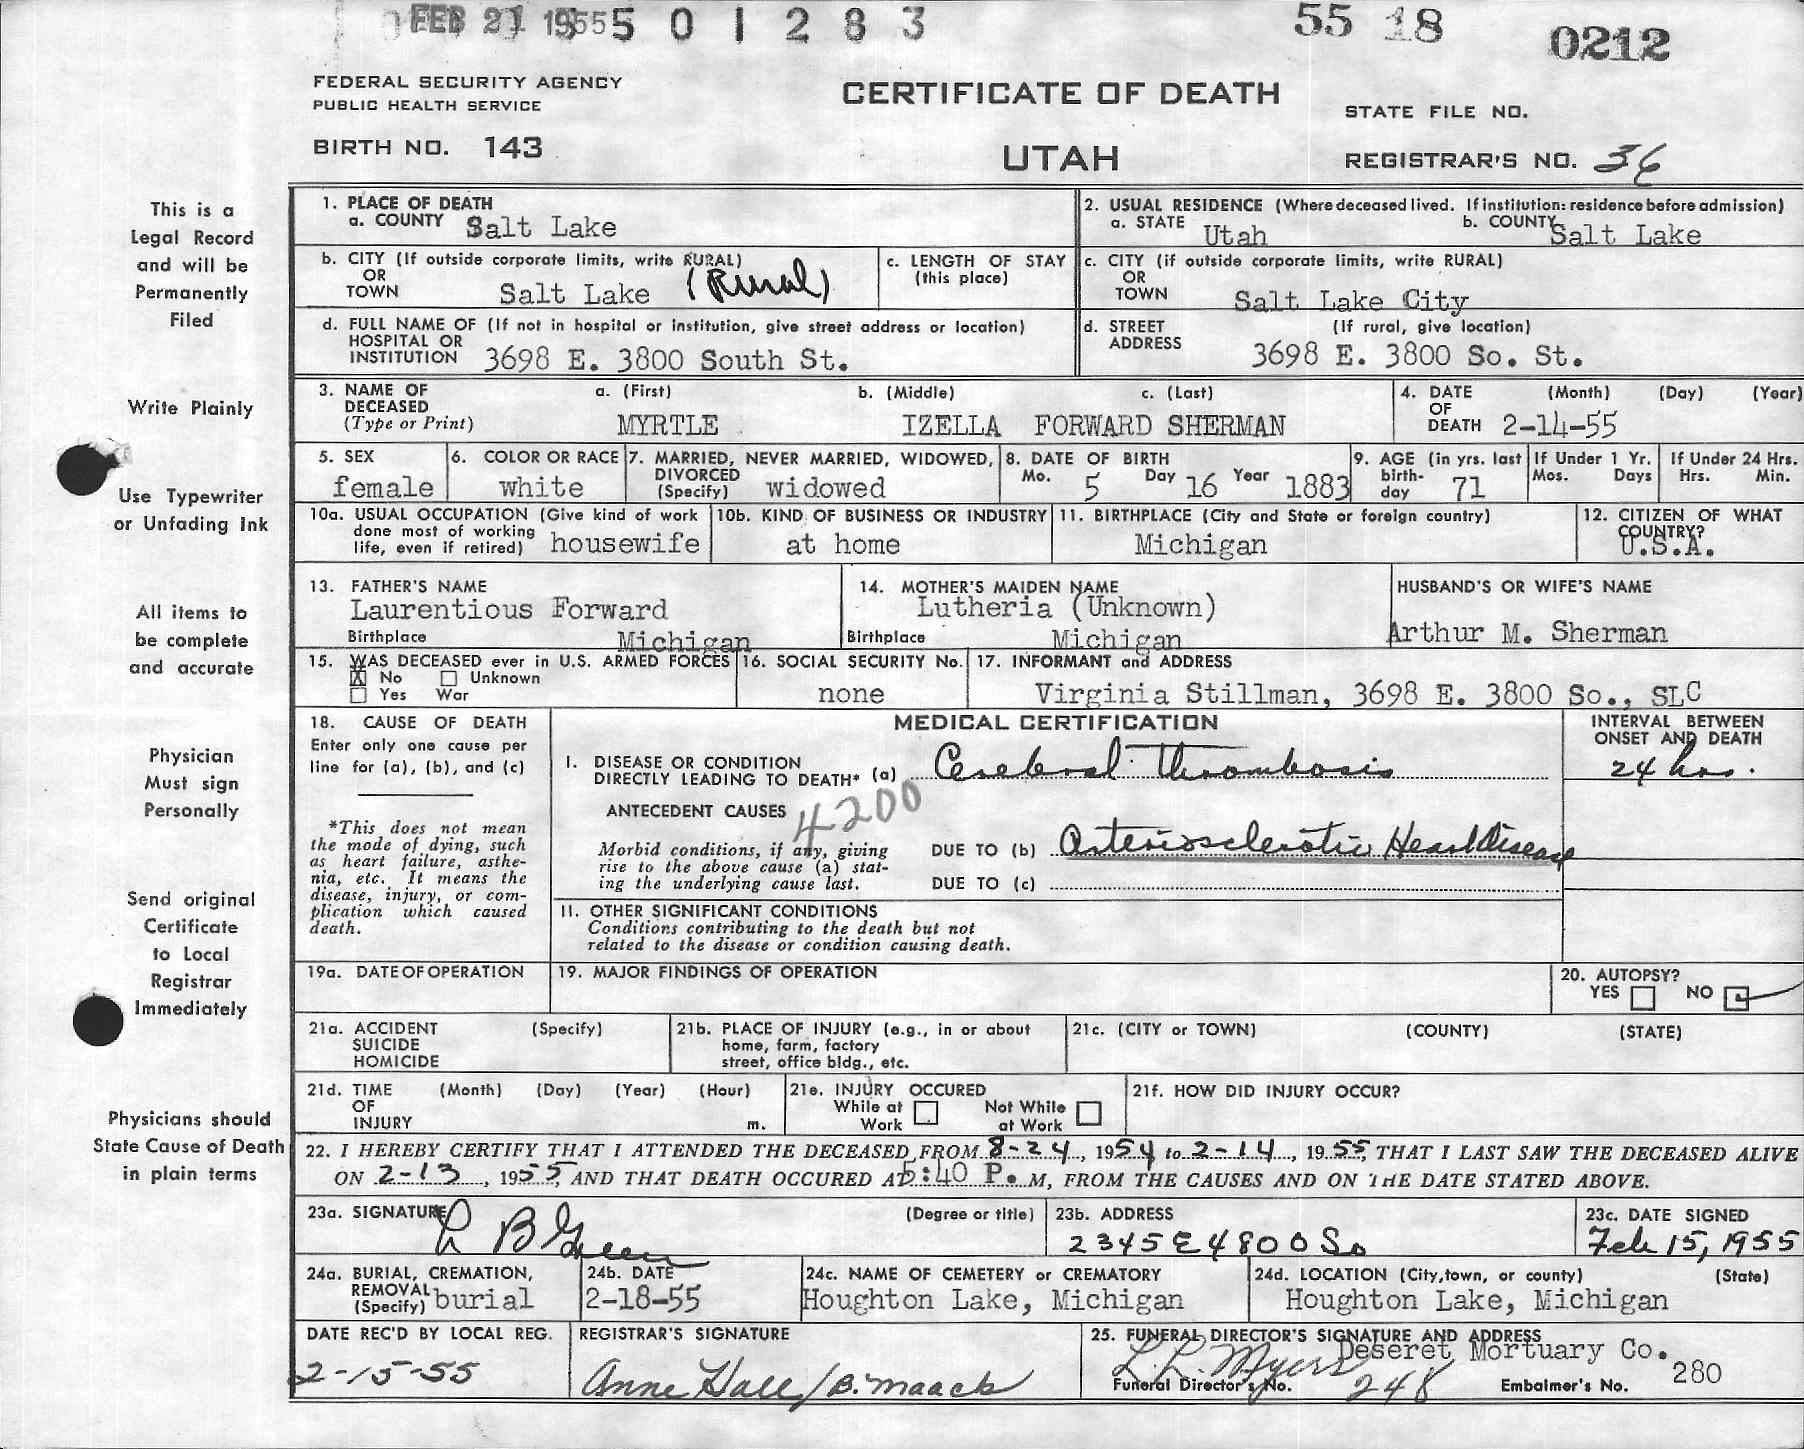 FEB 21 1955 5 0 1 2 8 3
55 18 0212
FEDERAL SECURITY AGENCY
PUBLIC HEALTH SERVICE
BIRTH NO. 143
CERTIFICATE OF DEATH
UTAH
STATE FILE NO.
REGISTRAR'S NO. 36
This is a
Legal Record
and will be
Permanently
Filed
Write Plainly
Use Typewriter
or Unfading Ink
All items to
be complete
and accurate
Physician
Must sign
Personally
Send original
Certificate
to Local
Registrar
Immediately
Physicians should
State Cause of Death
in plain terms
1. PLACE OF DEATH
a. COUNTY Salt Lake
2. USUAL RESIDENCE (Where deceased lived. If institution: residence before admission)
a. STATE Utah b. COUNTY Salt Lake
b. CITY (If outside corporate limits, write RURAL)
OR
TOWN Salt Lake (Rural)
c. LENGTH OF STAY
(this place)
c. CITY (if outside corporate limits, write RURAL)
OR
TOWN Salt Lake City
d. FULL NAME OF (If not in hospital or institution, give street address or location)
HOSPITAL OR
INSTITUTION 3698 E. 3800 South St.
d. STREET (If rural, give location)
ADDRESS 3698 E. 3800 So. St.
3. NAME OF a. (First) b. (Middle) c. (Last)
DECEASED
(Type or Print) MYRTLE IZELLA FORWARD SHERMAN
4. DATE (Month) (Day) (Year)
OF
DEATH 2-14-55
5. SEX
female
6. COLOR OR RACE
white
7. MARRIED, NEVER MARRIED, WIDOWED,
DIVORCED
(Specify) widowed
8. DATE OF BIRTH
Mo. 5 Day 16 Year 1883
9. AGE (in yrs. last
birth-
day 71
If Under 1 Yr.
Mos. Days
If Under 24 Hrs.
Hrs. Min.
10a. USUAL OCCUPATION (Give kind of work
done most of working
life, even if retired) housewife
10b. KIND OF BUSINESS OR INDUSTRY
at home
11. BIRTHPLACE (City and State or foreign country)
Michigan
12. CITIZEN OF WHAT
COUNTRY?
U.S.A.
13. FATHER'S NAME
Laurentious Forward
Birthplace Michigan
14. MOTHER'S MAIDEN NAME
Lutheria (Unknown)
Birthplace Michigan
HUSBAND'S OR WIFE'S NAME
Arthur M. Sherman
15. WAS DECEASED ever in U.S. ARMED FORCES
X No Unknown
Yes War
16. SOCIAL SECURITY No.
none
17. INFORMANT and ADDRESS
Virginia Stillman, 3698 E. 3800 So., SLC
18. CAUSE OF DEATH
Enter only one cause per
line for (a), (b), and (c)
*This does not mean
the mode of dying, such
as heart failure, asthe-
nia, etc. It means the
disease, injury, or com-
plication which caused
death.
MEDICAL CERTIFICATION
INTERVAL BETWEEN
ONSET AND DEATH
I. DISEASE OR CONDITION
DIRECTLY LEADING TO DEATH* (a) Cerebral Thrombosis 24 hrs.
ANTECEDENT CAUSES 4200
Morbid conditions, if any, giving
rise to the above cause (a) stat-
ing the underlying cause last.
DUE TO (b) Arteriosclerotic Heart Disease
DUE TO (c)
II. OTHER SIGNIFICANT CONDITIONS
Conditions contributing to the death but not
related to the disease or condition causing death.
19a. DATE OF OPERATION
19. MAJOR FINDINGS OF OPERATION
20. AUTOPSY?
YES NO
21a. ACCIDENT (Specify)
SUICIDE
HOMICIDE
21b. PLACE OF INJURY (e.g., in or about
home, farm, factory
street, office bldg., etc.
21c. (CITY or TOWN) (COUNTY) (STATE)
21d. TIME (Month) (Day) (Year) (Hour)
OF
INJURY m.
21e. INJURY OCCURED
While at Work Not While at Work
21f. HOW DID INJURY OCCUR?
22. I HEREBY CERTIFY THAT I ATTENDED THE DECEASED FROM 8-24, 1954 to 2-14, 1955, THAT I LAST SAW THE DECEASED ALIVE
ON 2-13, 1955, AND THAT DEATH OCCURED AT 5:40 P. M, FROM THE CAUSES AND ON THE DATE STATED ABOVE.
23a. SIGNATURE (Degree or title)
L B Green
23b. ADDRESS
2345 E 4800 So
23c. DATE SIGNED
Feb 15, 1955
24a. BURIAL, CREMATION,
REMOVAL
(Specify) burial
24b. DATE
2-18-55
24c. NAME OF CEMETERY or CREMATORY
Houghton Lake, Michigan
24d. LOCATION (City, town, or county) (State)
Houghton Lake, Michigan
DATE REC'D BY LOCAL REG.
2-15-55
REGISTRAR'S SIGNATURE
Anne Hall/B. Maack
25. FUNERAL DIRECTOR'S SIGNATURE AND ADDRESS
Deseret Mortuary Co.
L. L. Myers
Funeral Director's No. 248 Embalmer's No. 280